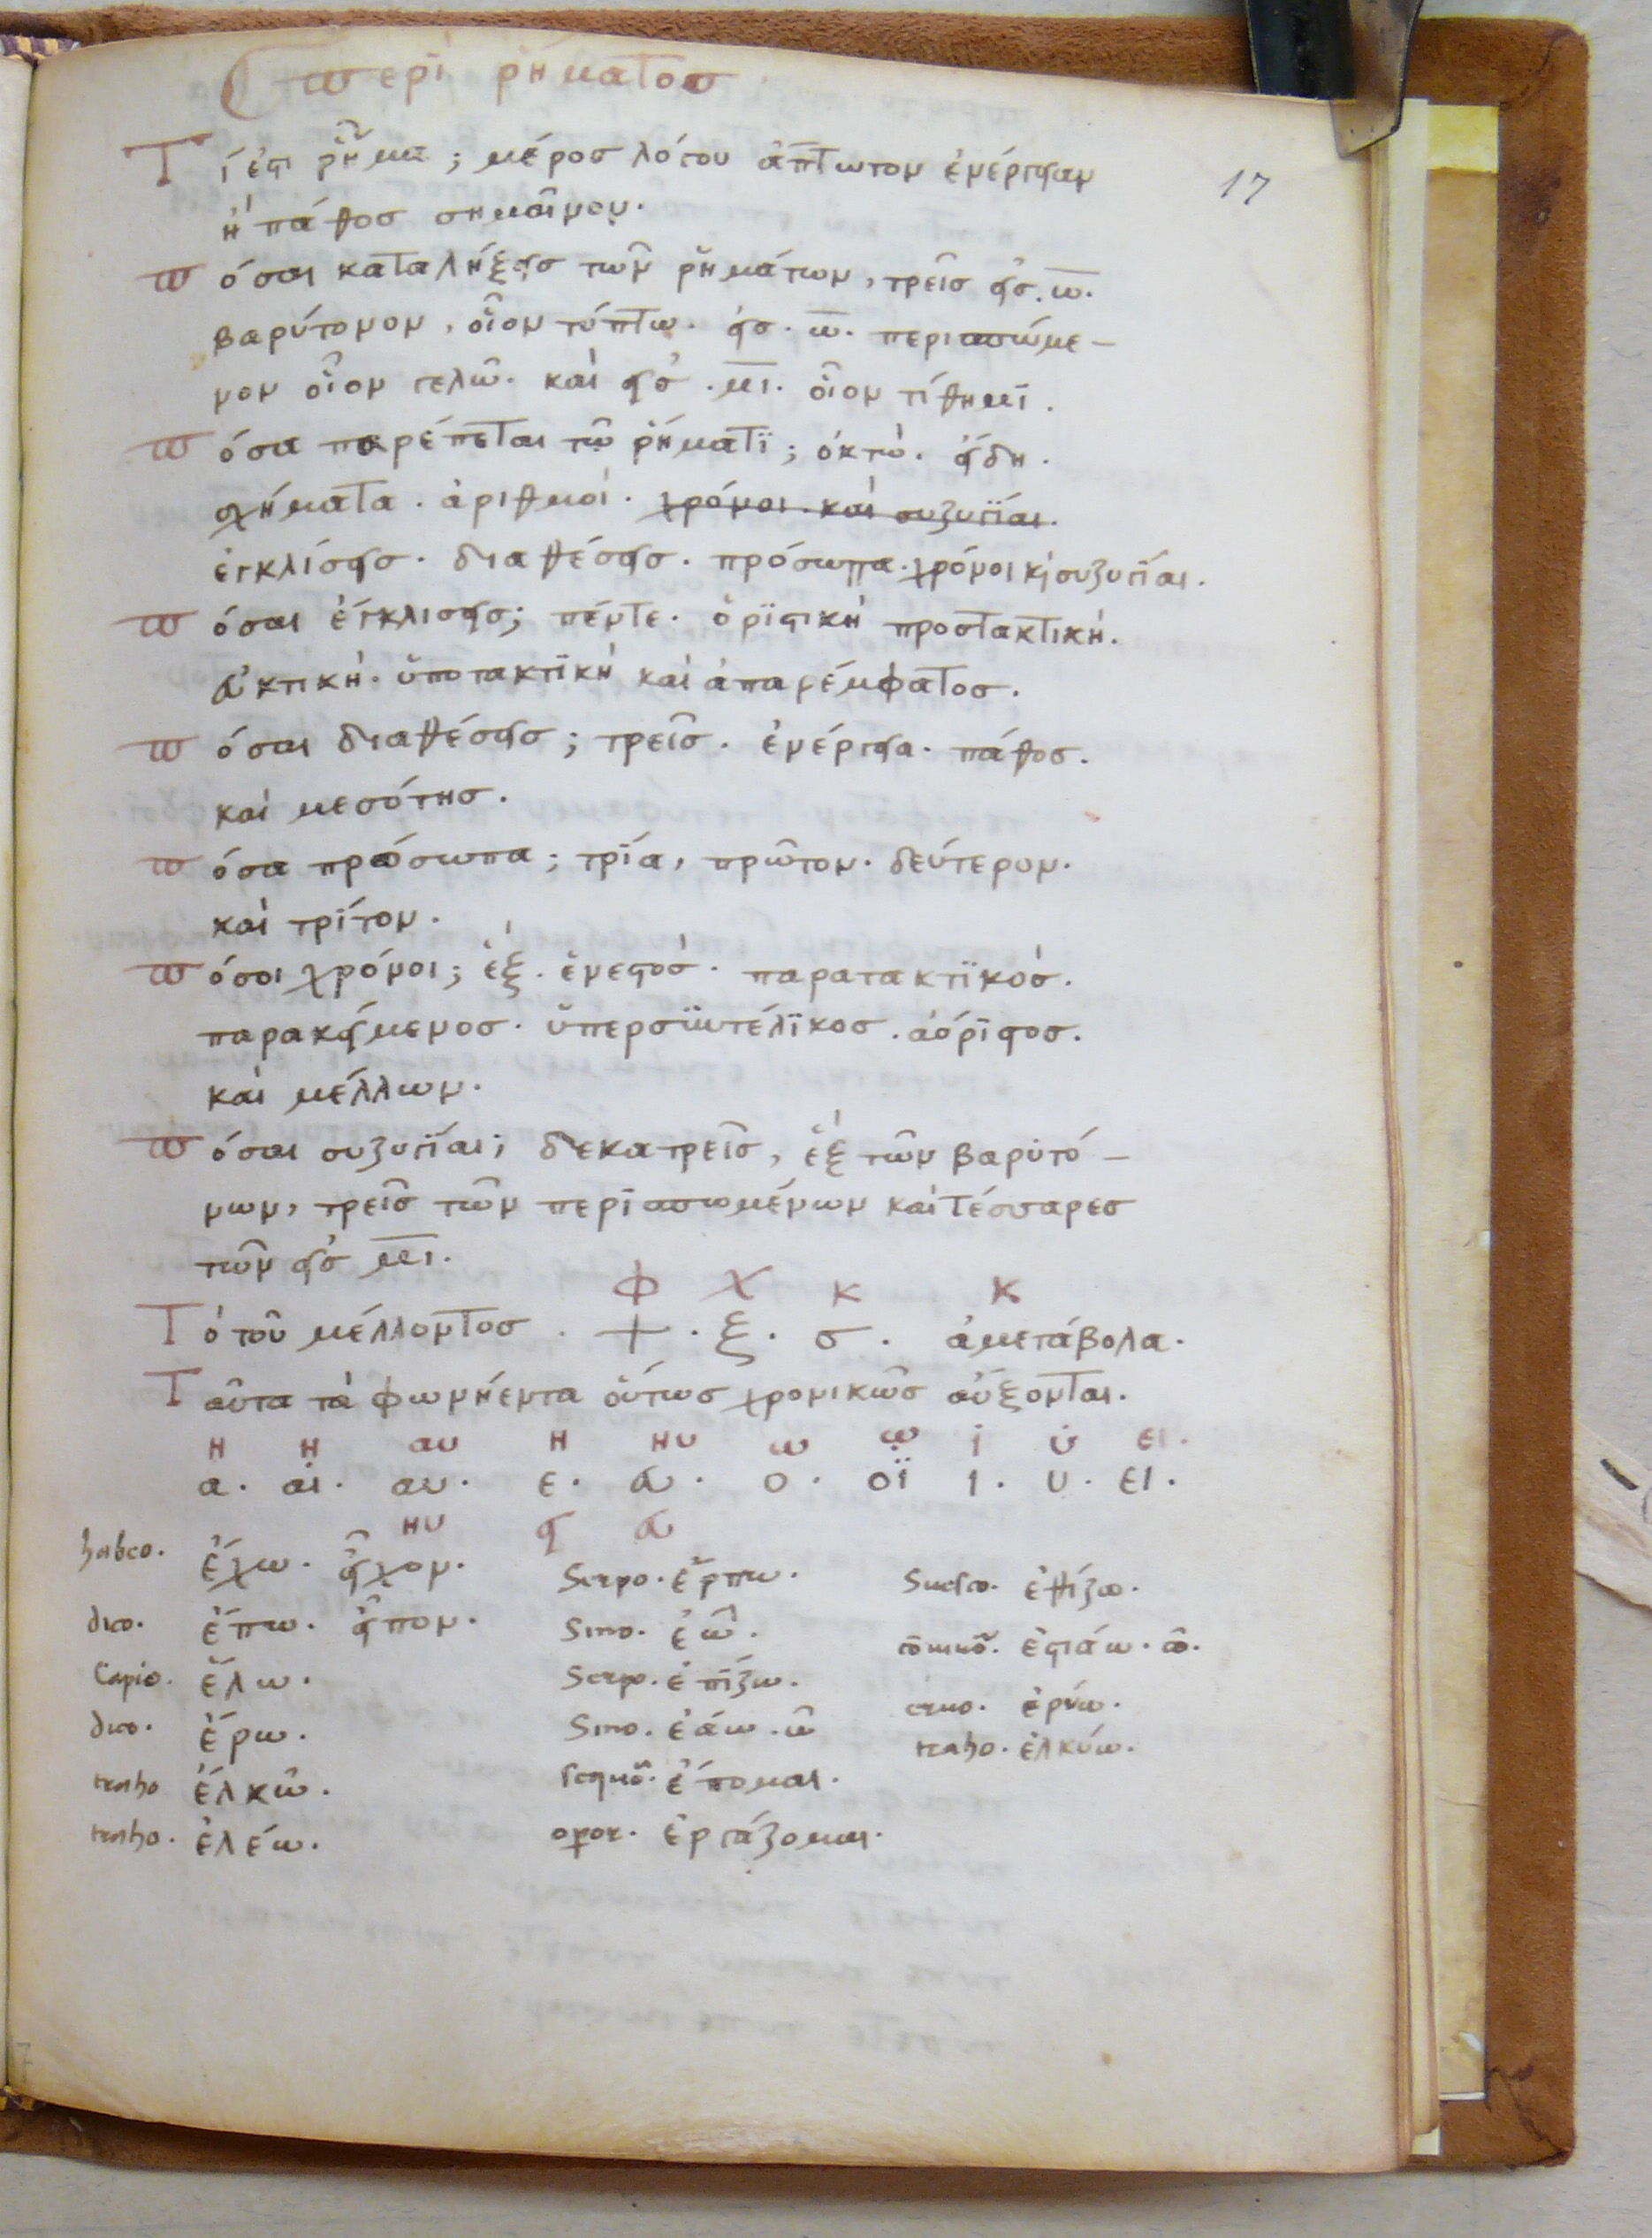 περὶ ῥήματος
17
Τί ἐστι ῥῆμα; μέρος λόγου ἄπτωτον ἐνέργειαν
ἢ πάθος σημαῖνον.
Πόσαι καταλήξεις τῶν ῥημάτων, τρεῖς εἰς. ω̅.
βαρύτονον, οἷον τύπτω. εἰς. ω̅. περισπώμε–
νον οἷον τελῶ. καὶ εἰς . μ̅ι̅. οἷον τίθημϊ.
Πόσα παρέπεται τῷ ῥήματϊ; ὀκτώ. εἴδη.
σχήματα. ἀριθμοί. χρόνοι. καὶ συζυγίαι.
ἐγκλίσεις. διαθέσεις. πρόσωπα. χρόνοι κ̀ συζυγίαι.
Πόσαι ἐγκλισεις; πέντε. ὁρϊστικὴ προστακτικὴ.
εὐκτικὴ. ὑποτακτϊκὴ καὶ ἀπαρέμφατος.
Πόσαι διαθέσεις; τρεῖς. ἐνέργεια. πάθος.
καὶ μεσότης.
Πόσα πρόσωπα; τρία, πρῶτον. δεύτερον.
καὶ τρίτον.
Πόσοι χρόνοι; ἓξ. ἐνεστὸς. παρατακτϊκὸς.
παρακείμενος. ὑπερσϋντέλϊκος. ἀόρϊστος.
καὶ μέλλων.
Πόσαι συζυγίαι; δεκατρεῖς, ἓξ τῶν βαρυτό–
νων, τρεῖς τῶν περισπωμένων καὶ τέσσαρες
τῶν εἰς μ̅ι̅.
φ χ κ κ
Τὸ τοῦ μέλλοντος . ψ . ξ . σ . ἀμετάβολα.
Ταῦτα τὰ φωνήεντα οὕτως χρονικῶς αὔξονται.
η η αυ η ηυ ω ῳ ι υ ει.
α. αι. αυ. ε. ευ. ο. οϊ ι. υ. ει.
ηυ ει ευ
habeo. ἔχω. εἶχον. Serpo. ἕρπω. Suesco. ἐθίζω.
dico. ἔπω. εἶπον. Sino. ἐῶ. ἐστιάω. ῶ.
Capio. ἕλω. Serpo. ἑπΐζω. eruo. ἐρύω.
dico. ἔρω. Sino. ἐάω. ῶ traho. ἑλκύω.
traho ἕλκῶ. sequor. ἕπομαι.
traho. ἑλέω. ἐργάζομαι.